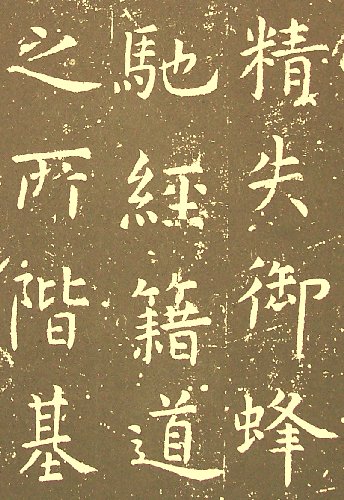 精失御蜂
馳經籍道
之所階基